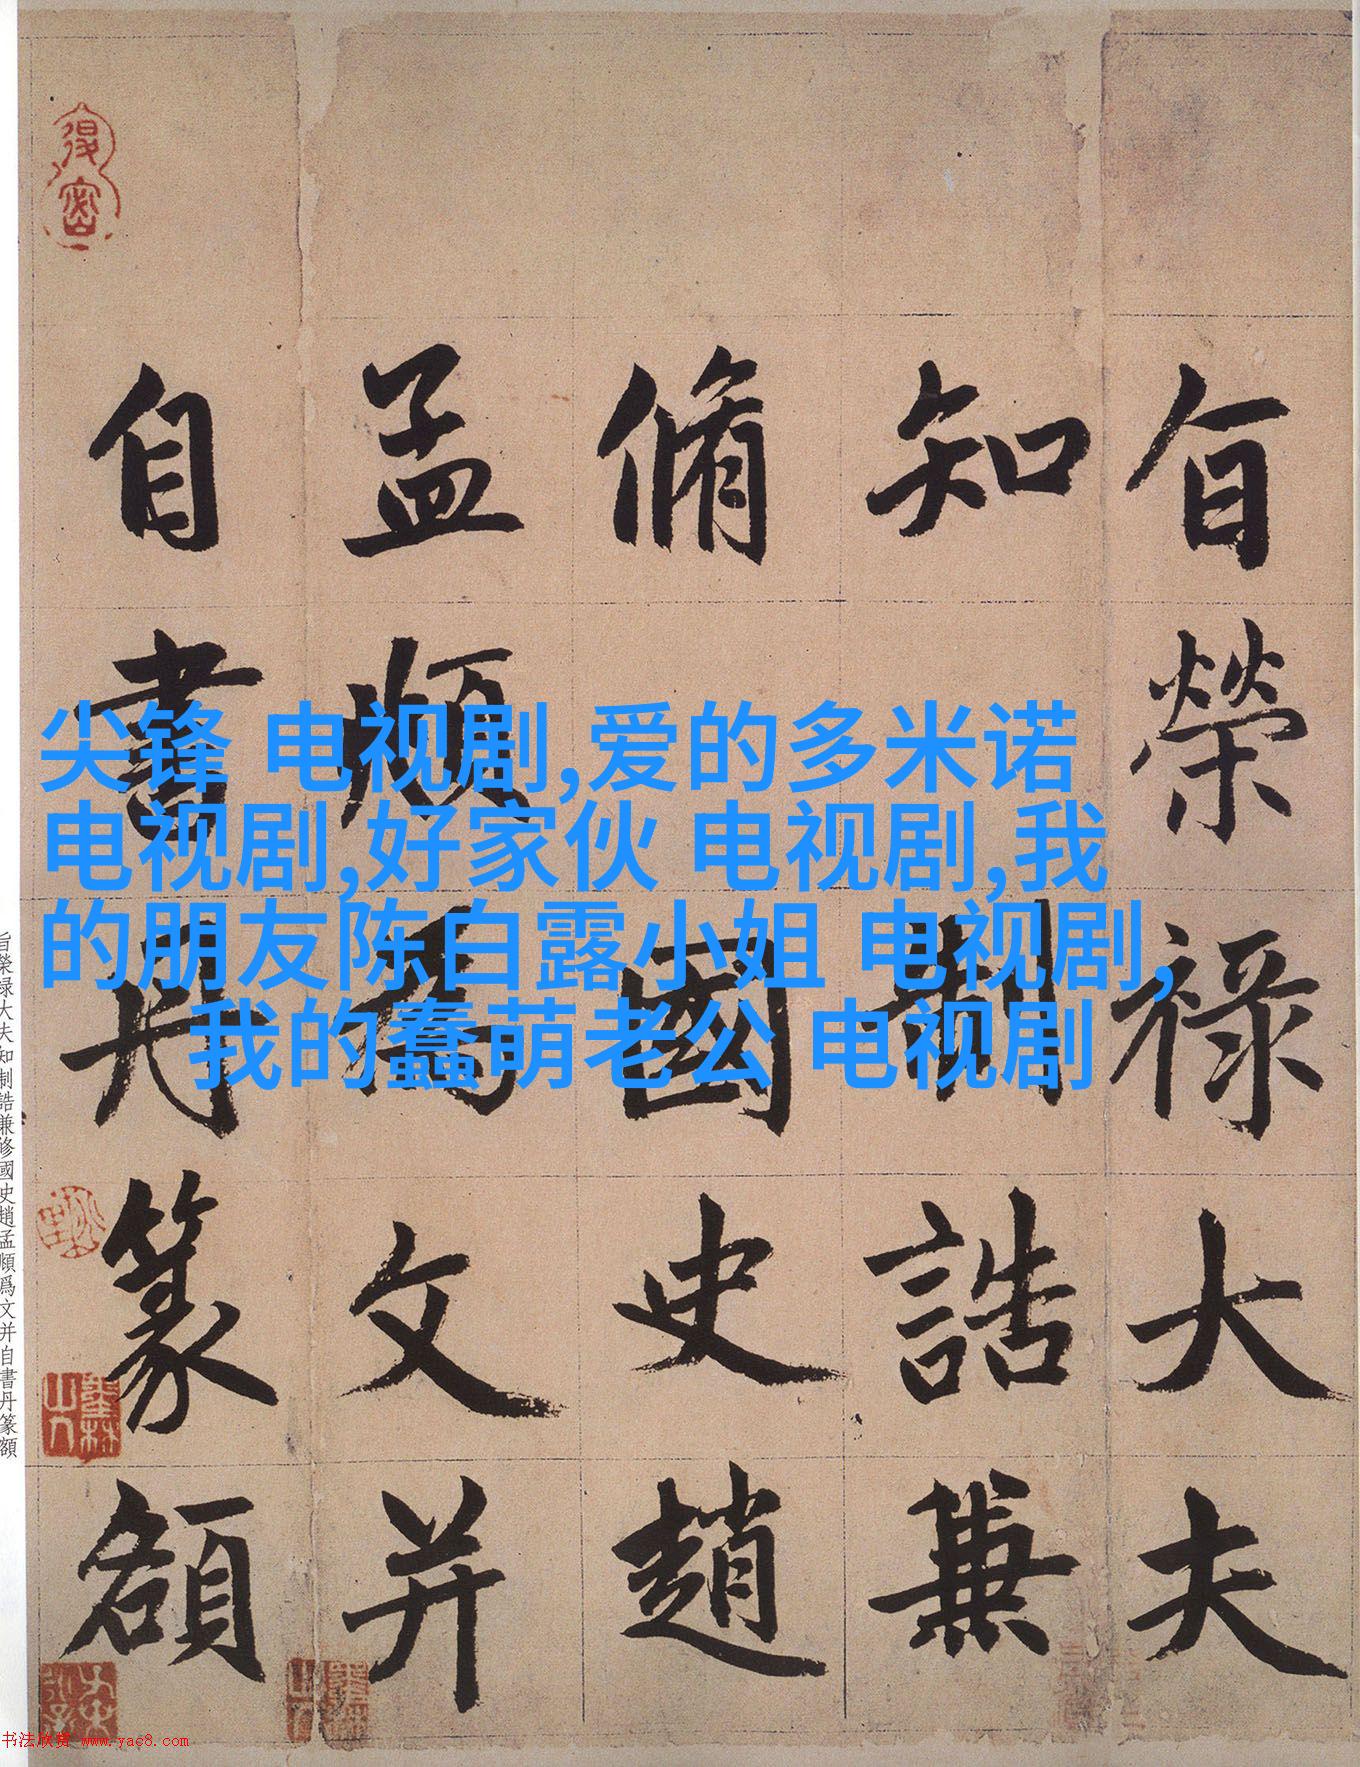 旨榮祿大夫
知制誥兼
脩國史趙
孟頫爲文并
自書丹篆額
尖锋 电视剧,爱的多米诺
电视剧,好家伙 电视剧,我
的朋友陈白露小姐 电视剧,
我的蠢萌老公 电视剧
旨榮禄大夫知制誥兼修國史趙孟頫爲文并自書丹篆額
书法欣赏 www.yac8.com